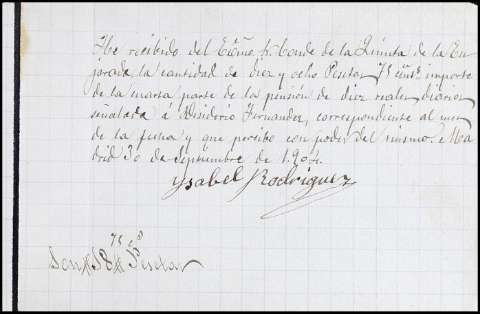 He recibido del Exômo Sr. Conde de la Quinta de la En
jarada la cantidad de diez y ocho Pesetas 75 cüts. importe
de la cuarta parte de la pensión de diez reales diarios
señalada á Desiderio Fernandez, correspondiente al mes
de la fecha y que percibo con poder del mismo. Ma
drid 30 de Septiembre de 1.904.
Ysabel Rodriguez
Son #18 75 c.s # Pesetas